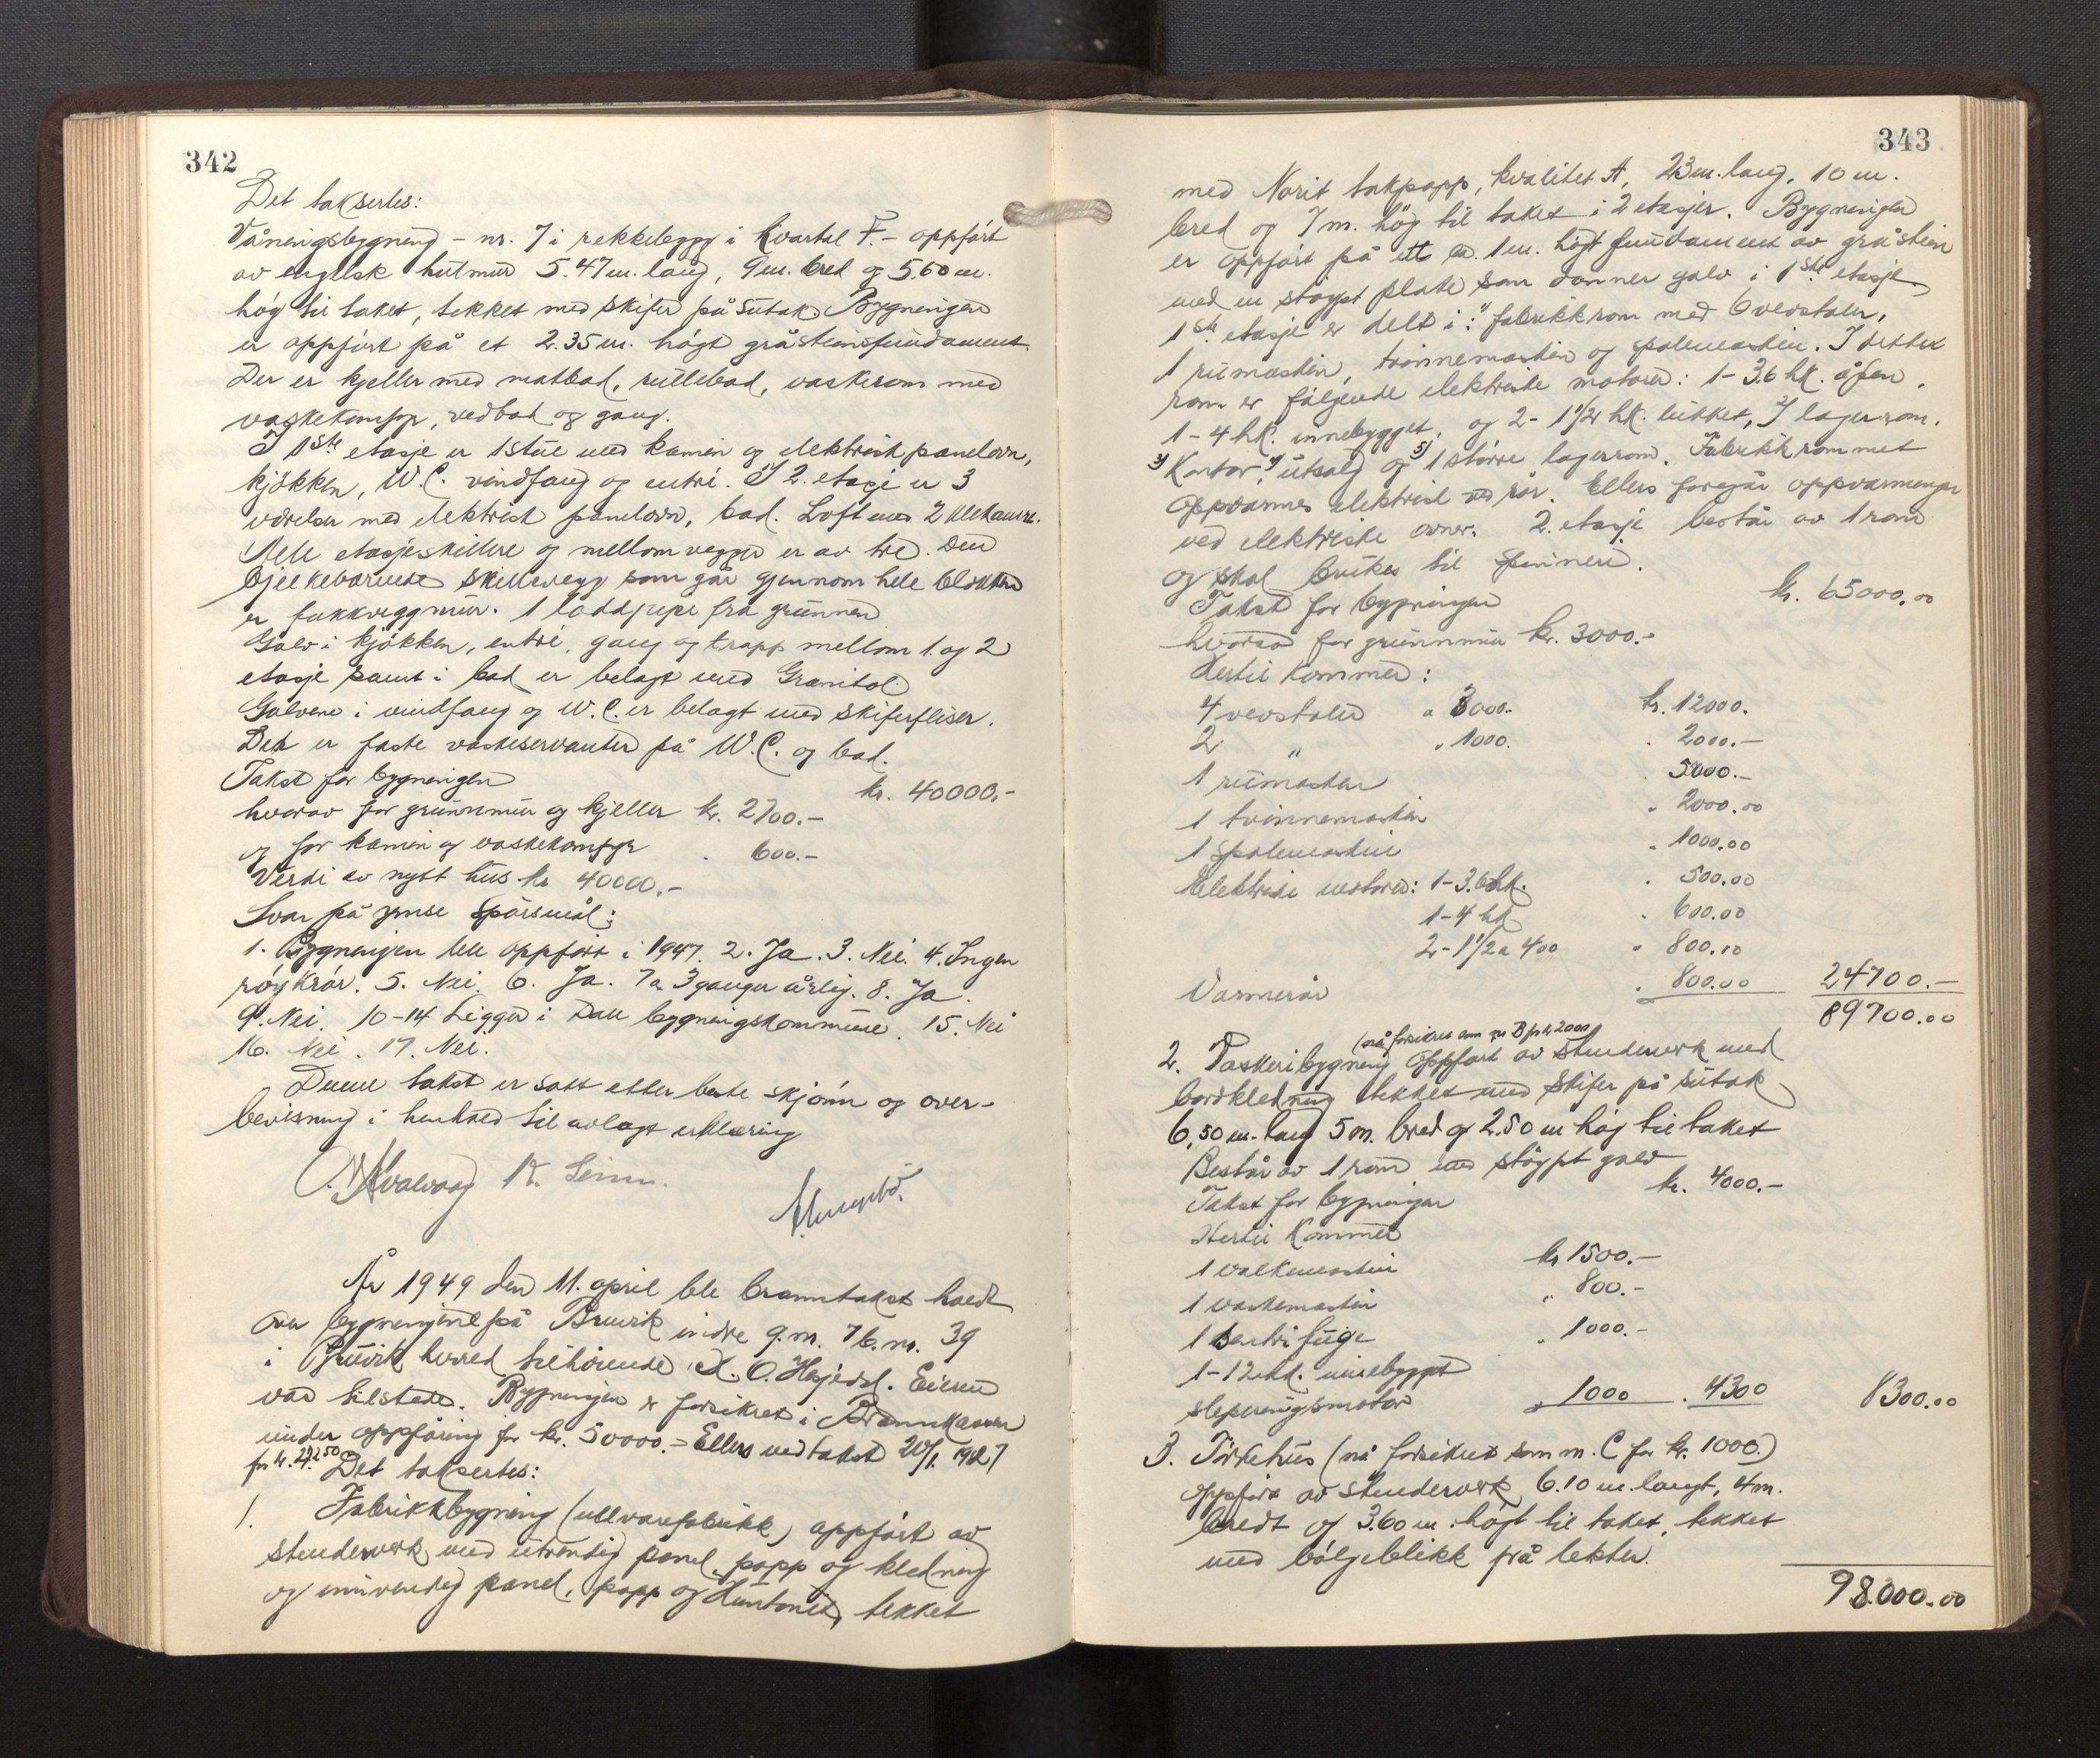 342
Det taksertes:
Våningsbygning – nr. 7 i rekkebygg i kvartal F. – oppført
av englisk hulmur 5.47 m. lang, 9 m. bred og 5.60 m.
høg til taket, tekket med skifer på sutak. Bygningen
er oppført på et 2.35 m. høgt gråsteinsfundament.
Der er kjeller med matbod, rullebod, vaskerom med
vaskekomfyr, vedbod og gang.
I 1ste etasje er 1 stue med kamin og elektrisk panelovn,
kjøkken, W.C. vindfang og entré. I 2. etasje er 3
værelser med elektrisk panelovn, bad. Loft med 2
Alle etasjeskillere og mellomvegger er av tre. Den
bjelkebærende skillevegg som går gjennom hele blokken
er fukkveggmur. 1 loddpipe fra grunnen
Golv i kjøkken, entré, gang og trapp mellom 1. og 2
etasje samt i bad er belagt med Granitol
Golvene i vindfang og W.C. er belagt med skiferfliser.
Det er faste vaskeservanter på W.C. og bad.
Takst for bygningen kr. 40000.-
hvorav for grunnmur og kjeller kr. 2700.-
og for kamin og vaskekomfyr " 600.-
Verdi av nytt hus kr 40000.-
Svar på ymse spørsmål:
1. Bygningen ble oppført i 1947. 2. Ja. 3. Nei. 4. Ingen
røykrør. 5. Nei. 6. Ja. 7a 3 ganger årlig. 8. Ja.
9. Nei. 10-14 Ligger i Dale bygningskommune. 15. Nei
16. Nei. 17. Nei.
Denne takst er satt etter beste skjønn og over-
bevisning i henhold til avlagt erklæring
O. Kvalvaag K. Leirn.
År 1949 den 11. april ble branntakst holdt
over bygningene på Bruvik indre g.nr. 7 b.nr. 39
i Bruvik herred tilhørende K. O. Eieren
var tilstede. Bygningen er forsikret i Brannkassen
under oppføring for kr. 50000.- Ellers ved takst 20/1. 1927
for kr.
Det taksertes:
1. Fabrikkbygning (ullvarefabrikk) oppført av
stenderverk med utvendig panel, papp og kledning
og innvendig panel, papp og Huntonit, tekket
343
med Norit takpapp, kvalitet A, 23 m. lang, 10 m.
bred og 7 m. høg til taket i 2 etasjer. Bygningen
er oppført på ett ca. 1 m. høgt fundament av gråstein
med en støypt plate som danner golv i 1ste etasje.
1ste etasje er delt i: 1) fabrikkrom med 6 vevstoler,
1 rumaskin, tvinnemaskin og spolemaskin. I dette
rom er følgende elektriske motorer: 1-3.6 hk. åpen,
1-4 hk. innebygget, og 2-1 1/2 hk. lukket, 2) lagerrom.
3) Kontor, 4) utsalg og 5) 1 større lagerrom. Fabrikkrommet
oppvarmes elektrisk ved rør. Ellers foregår oppvarmingen
ved elektriske ovner. 2. etasje består av 1 rom
og skal brukes til spinneri.
Takst for bygningen kr. 65000.00
hvorav for grunnmur kr. 3000.-
Hertil kommer:
4 vevstoler a 3000.- kr. 12000.
2 " " 1000. " 2000.-
1 rumaskin " 5000.-
1 tvinnemaskin " 2000.00
1 spolemaskin " 1000.00
Elektriske motorer: 1-3.6 hk. " 500.00
1-4 hk " 600.00
2-1 1/2 a 400 " 800.00
Varmerør " 800.00 24700.-
89700.00
(nå forsikret som nr B for kr 2000)
2. Vaskeribygning oppført av stenderverk med
bordkledning tekket med skifer på sutak
6,50 m. lang 5 m. bred og 2.50 m høg til taket
Består av 1 rom med støypt golv
Takst for bygningen kr. 4000.-
Hertil kommer
1 valkemaskin kr 1500.-
1 vaskemaskin " 800.-
1 sentrifuge " 1000.-
1-12 hk. innebyggt
sleperingsmotor " 1000 . 4300 8300.00
3. Tørkehus (nå forsikret som nr. C for kr. 1000.)
oppført av stenderverk 6.10 m. langt, 4 m.
bredt og 3.60 m. høgt til taket, tekket
med bølgeblikk på lekter.
98.000.00